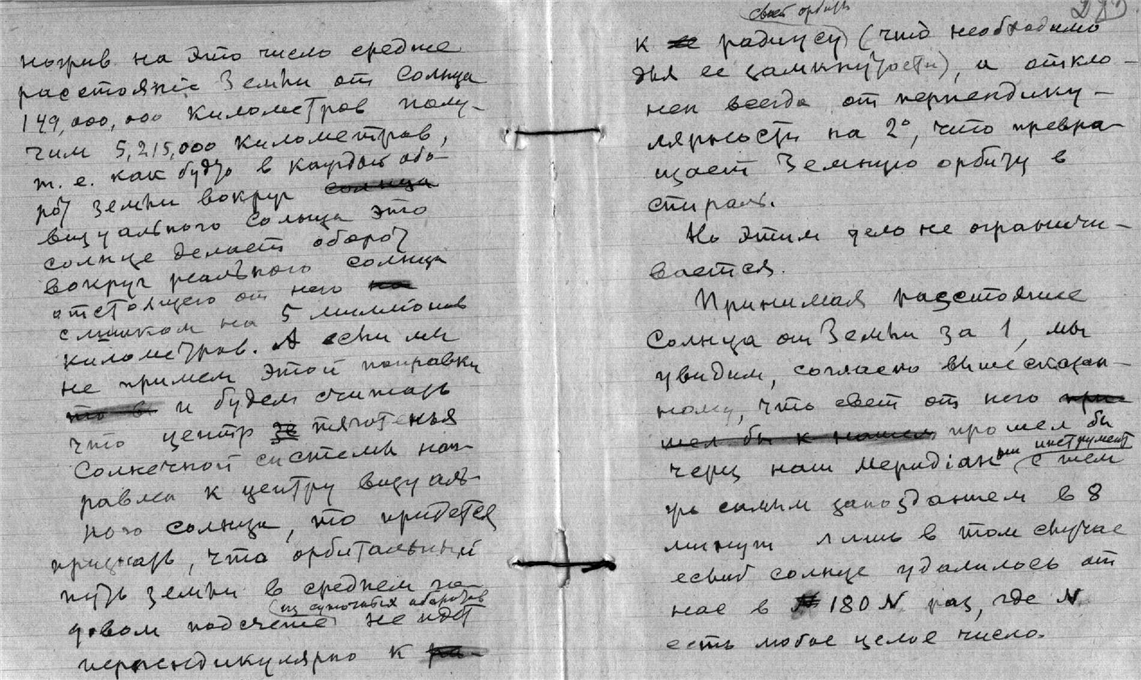 ножив на это число среднее
расстояніе Земли от Солнца
149,000,000 километров полу-
чим 5,215,000 километров,
т. е. как будто в каждый обо-
рот земли вокруг солнца
визуального солнца это
солнце делает оборот
вокруг реального солнца
отстоящего от него на
слишком на 5 миллионов
километров. А если мы
не примем этой поправки
то в и будем считать
что центр тяготенья
солнечной системы нап-
равлен к центру визуаль-
ного солнца, то придется
признать, что орбитальный
путь земли в среднем го-
(из суточных оборотов
довом подсчете не идет
перпендикулярно к ра-
283
своей орбиты
к радиусу) (что необходимо
для ее замкнутости), а откло-
нен всегда от перпендику-
лярности на 2°, что превра-
щает Земную орбиту в
спираль.
Но этим дело не ограничи-
вается.
Принимая расстояние
Солнца от Земли за 1, мы
увидим, согласно вышесказан-
ному, что свет от него при-
шел бы к нашем прошел бы
через наш меридіан инструмент
с тем
же самым запозданием в 8
минут лишь в том случае
еслиб солнце удалилось от
нас в 180 N раз, где N
есть любое целое число.